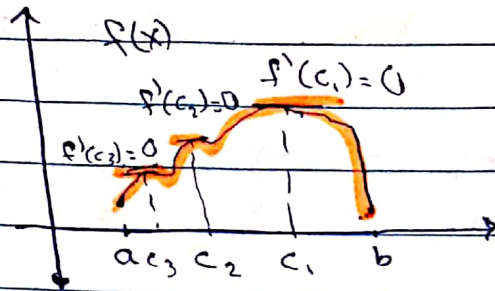 f(x)
f'(c₁) = 0
f'(c₂)=0
f'(c₃)=0
a c₃ c₂ c₁ b